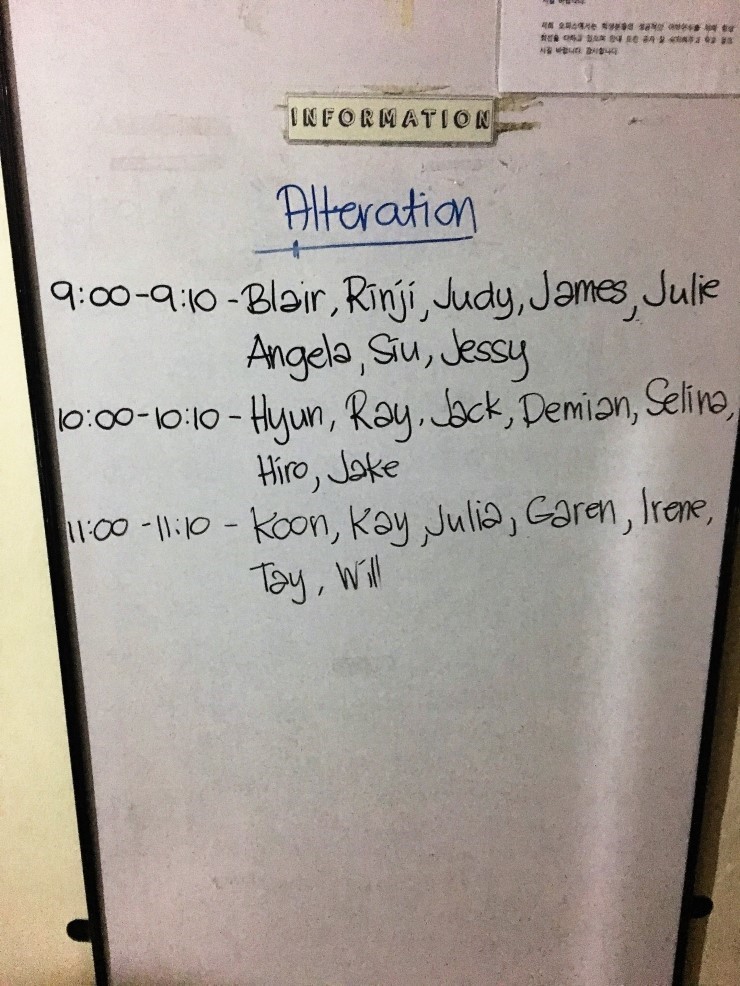 시길 바랍니다.
INFORMATION
Alteration
9:00-9:10 - Blair, Rinji, Judy, James, Julie
Angela, Siu, Jessy
10:00-10:10 - Hyun, Ray, Jack, Demian, Selina,
Hiro, Jake
11:00 - 11:10 - Koon, Kay, Julia, Garen, Irene,
Tay, Will